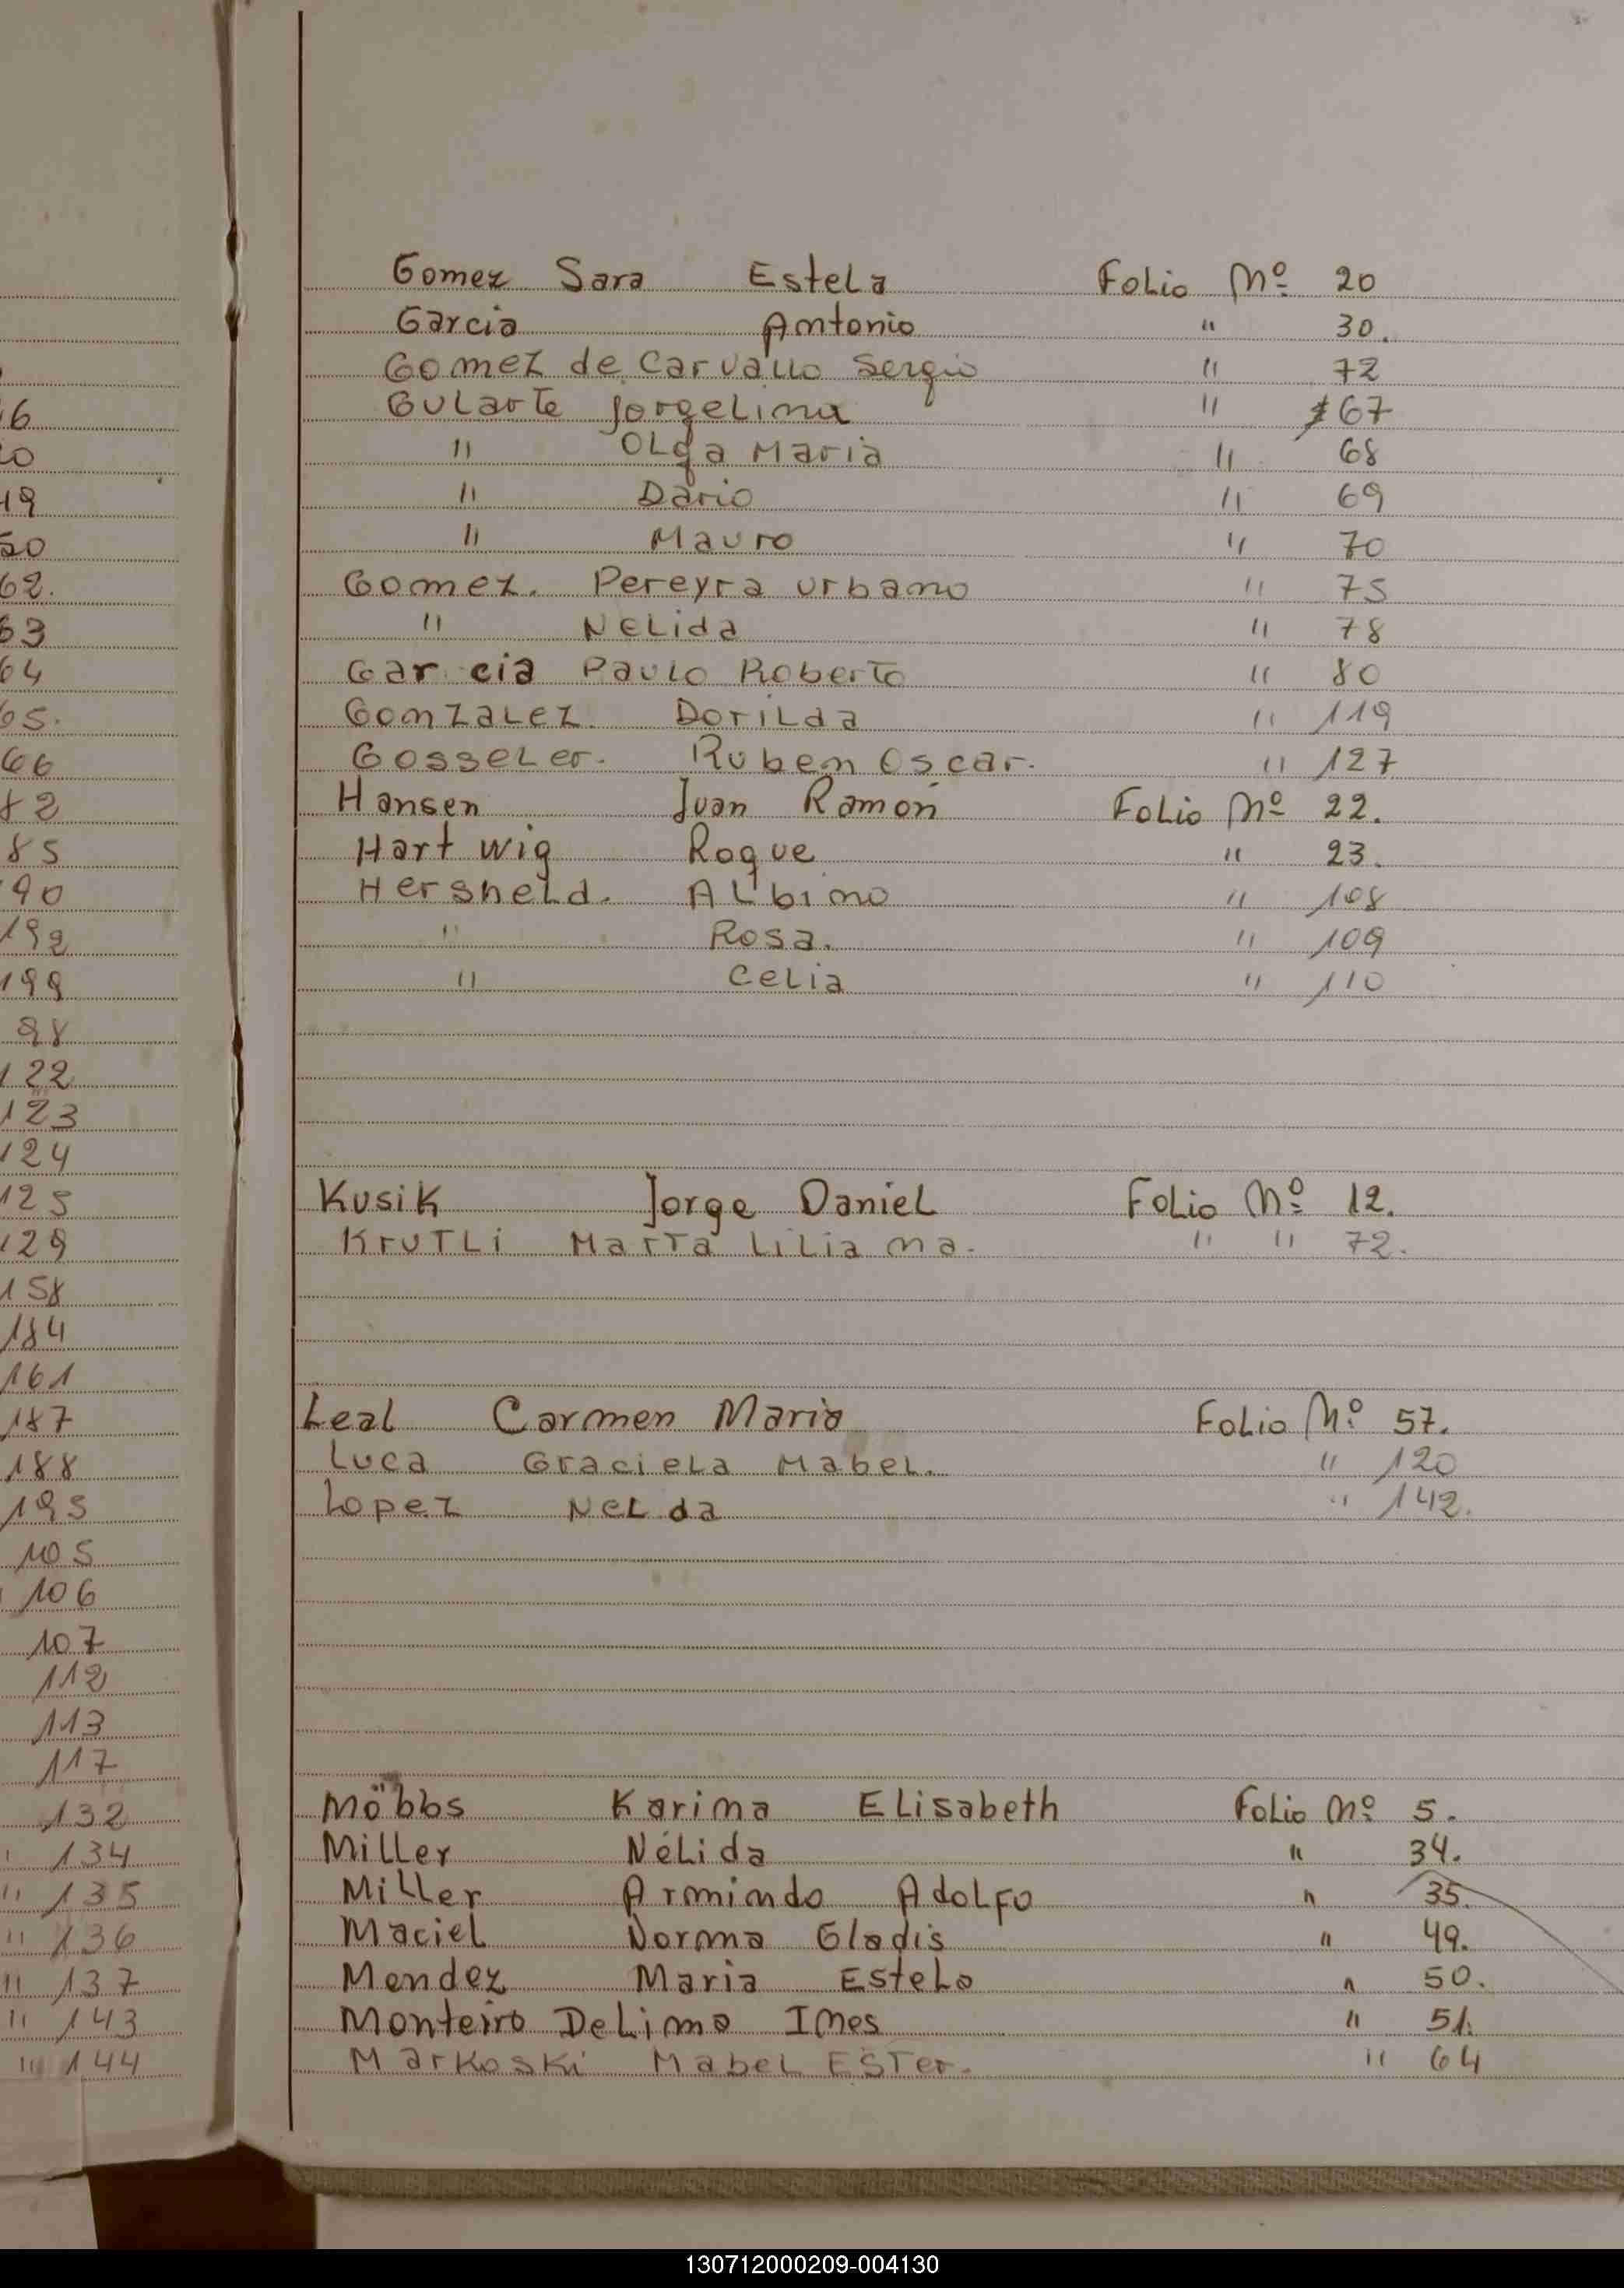 6
0
19
50
62.
63
64
65.
66
82
85
190
192
199
98
122
123
124
125
129
158
184
161
187
188
195
105
106
107
112
113
117
132
134
" 135
" 136
" 137
" 143
" 144
Gomez Sara Estela Folio Nº 20
Garcia Antonio " 30.
Gomez de Carvallo Sergio " 72
Gularte Jorgelina " 67
" Olga Maria " 68
" Dario " 69
" Mauro " 70
Gomez. Pereyra Urbano " 75
" Nelida " 78
Garcia Paulo Roberto " 80
Gonzalez. Dorilda " 119
Gosseler. Ruben Oscar. " 127
Hansen Juan Ramón Folio Nº 22.
Hartwig Roque " 23.
Hersheld. Albino " 108
" Rosa. " 109
" Celia " 110
Kusik Jorge Daniel Folio Nº 12.
Krutli Marta Liliana. " " 72.
Leal Carmen Maria Folio Nº 57.
Luca Graciela Mabel. " 120
Lopez Nelda " 142.
Möbbs Karina Elisabeth Folio Nº 5.
Miller Nélida " 34.
Miller Armindo Adolfo " 35.
Maciel Norma Gladis " 49.
Mendez Maria Estela " 50.
Monteiro DeLima Ines " 51.
Markoski Mabel Ester. " 64
130712000209-004130